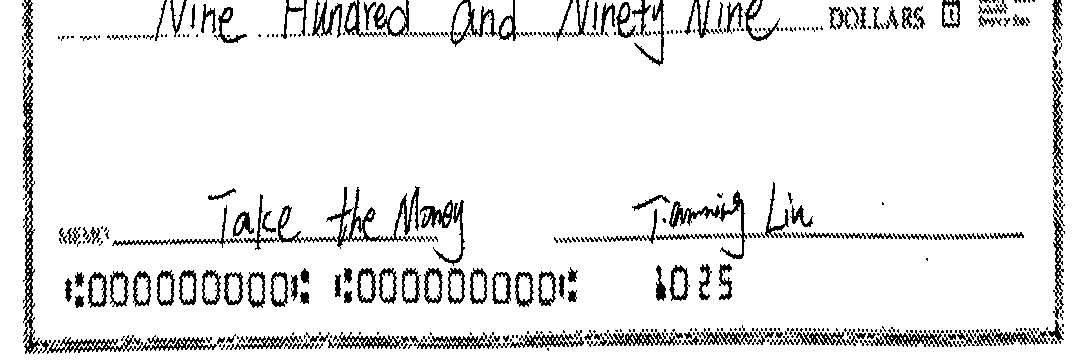 Nine Hundred and Ninety Nine DOLLARS
MEMO Take the Money Tanming Liu
⑆000000000⑆ ⑆000000000⑆ 1025